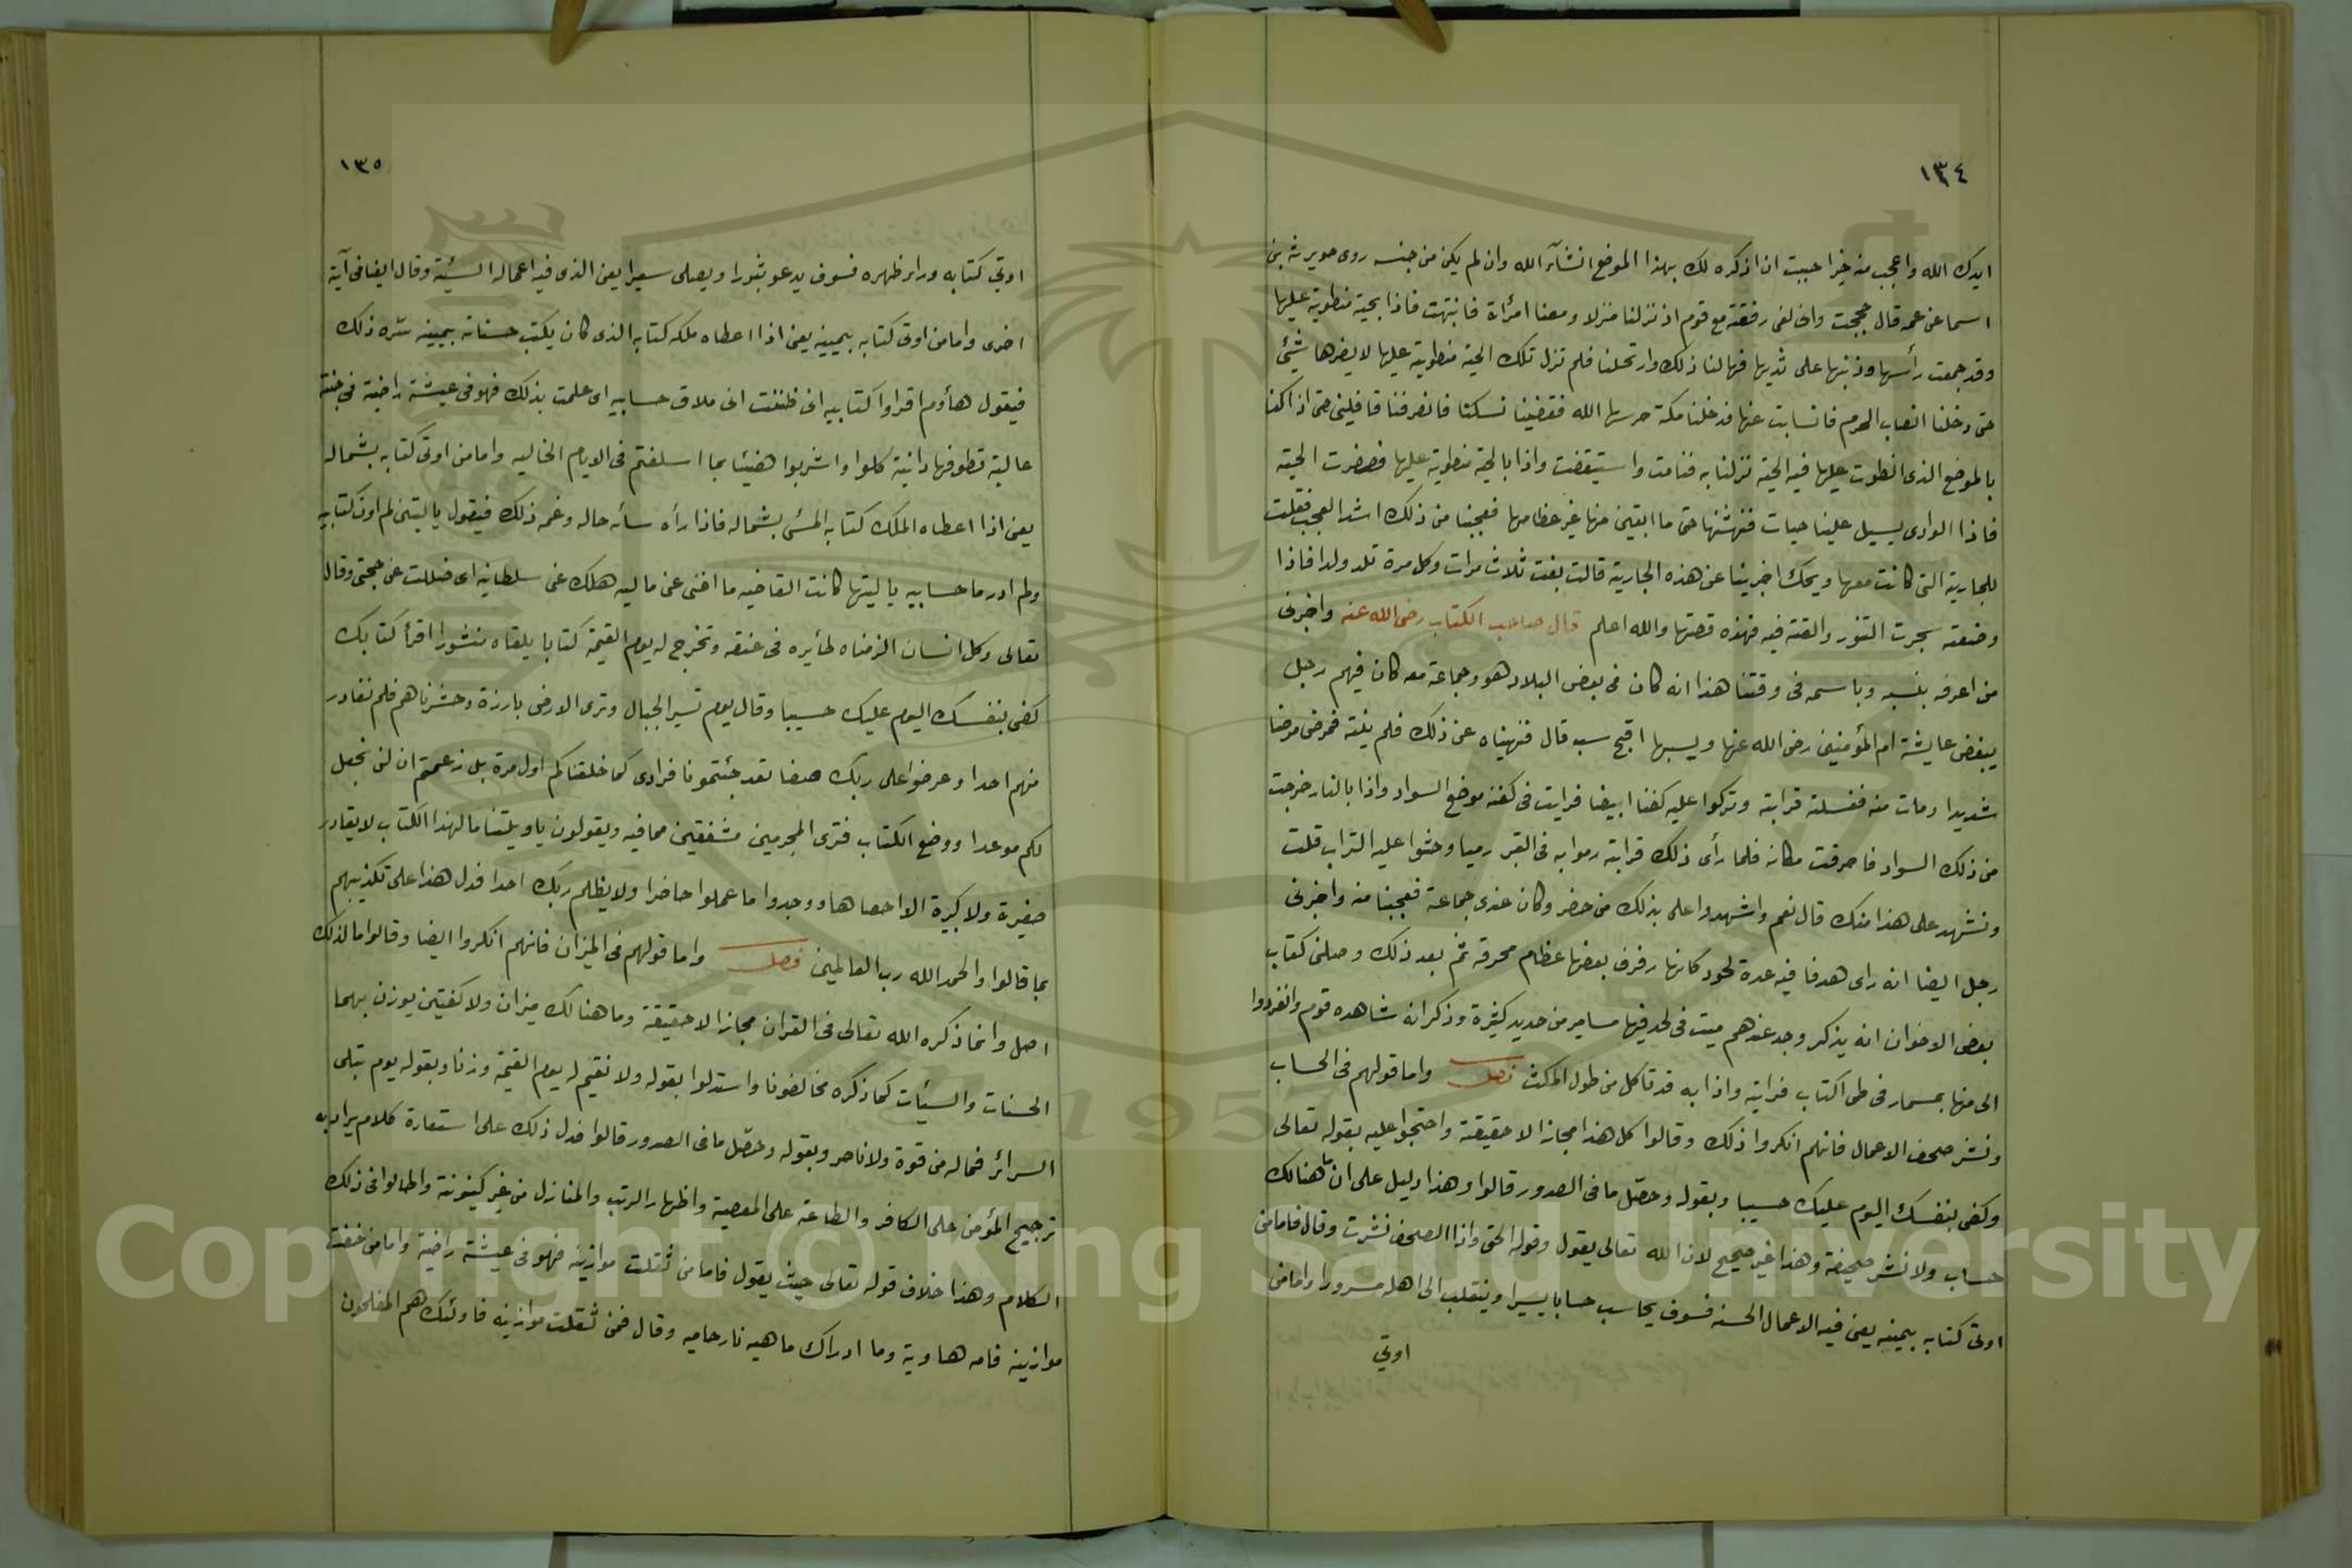 ١٣٤
ايدك الله واعجب منه خبرا احببت ان اذكره لك بهذا الموضع انشآء الله وان لم يكن من جنسه روى جويرية بن
اسما عن عمه قال حججت وانى لفى رفقة مع قوم اذ نزلنا منزلا ومعنا امرأة فانتبهت فاذا بحية منطوية عليها
وقد جمعت رأسها وذنبها على ثديها فهالنا ذلك وارتحلنا فلم تزل تلك الحية منطوية عليها لا يضرها شئ
حتى دخلنا انصاب الحرم فانسابت عنها فدخلنا مكة حرسها الله فقضينا نسكنا فانصرفنا قافلين حتى اذا كنا
بالموضع الذى انطوت عليها فيه الحية نزلنا به فنامت واستيقضت واذا بالحية منطوية عليها فصفرت الحية
فاذا الوادى يسيل علينا حيات فنهشنها حتى ما ابقين منها غير عظامها فعجبنا من ذلك اشد العجب فقلت
للجارية التى كانت معها ويحك اخبرينا عن هذه الجارية قالت بغت ثلاث مرات وكل مرة تلد ولدا فاذا
وضعته سجرت التنور والقته فيه فهذه قصتها والله اعلم قال صاحب الكتاب رضى الله عنه واخبرنى
من اعرفه بنسبه وباسمه فى وقتنا هذا انه كان فى بعض البلاد هو وجماعة معه كان فيهم رجل
يبغض عايشة ام المؤمنين رضى الله عنها ويسبها اقبح سب قال فنهيناه عن ذلك فلم ينته فمرض مرضا
شديدا ومات منه فغسلته قرابته وتركوا عليه كفنا ابيضا فرايت فى كفنه موضع السواد واذا بالنار خرجت
من ذلك السواد فاحرقت مكانه فلما رأى ذلك قرابته رموا به فى القبر رميا وحثوا عليه التراب قلت
ونشهد على هذا منك قال نعم واشهدوا على بذلك من حضر وكان عندى جماعة فعجبنا منه واخبرنى
رجل ايضا انه راى هدفا فيه عدة لحود كانها رفرف بعضها عظام محرقة ثم بعد ذلك وصلنى كتاب
بعض الاخوان انه يذكر وجد عندهم ميت فى لحد فيها مسامير من حديد كثيرة وذكر انه شاهده قوم وانفردوا
الى منها بمسمار فى طى الكتاب فرايته واذا به قد تاكل من طول المكث فصل واما قولهم فى الحساب
ونشر صحف الاعمال فانهم انكروا ذلك وقالوا كل هذا مجازا لا حقيقة واحتجوا عليه بقوله تعالى
وكفى بنفسك اليوم عليك حسيبا وبقوله وحصّل ما فى الصدور قالوا وهذا دليل على ان ما هنالك
حساب ولا نشر صحيفة وهذا غير صحيح لان الله تعالى يقول وقوله الحق واذا الصحف نشرت وقال فاما من
اوتى كتابه بيمينه يعنى فيه الاعمال الحسنه فسوف يحاسب حسابا يسيرا وينقلب الى اهله مسرورا واما من
اوتي
١٣٥
اوتي كتابه وراء ظهره فسوف يدعو ثبورا ويصلى سعيرا يعنى الذى فيه اعماله السئية وقال ايضا فى آية
اخرى واما من اوتى كتابه بيمينه يعنى اذا اعطاه ملكه كتابه الذى كان يكتب حسناته بيمينه سّره ذلك
فيقول هاؤم اقراوا كتابيه انى ظننت انى ملاق حسابيه اى علمت بذلك فهو فى عيشة راضية فى جنة
عالية قطوفها دانية كلوا واشربوا هنيئا بما اسلفتم فى الايام الخاليه واما من اوتى كتابه بشماله
يعنى اذا اعطاه الملك كتابه المسئ بشماله فاذا رأه سأه حاله وغمه ذلك فيقول ياليتنى لم اوت كتابيه
ولم ادر ما حسابيه ياليتها كانت القاضيه ما اغنى عنى ماليه هلك عنى سلطانيه اى ضللت عن حجتى وقال
تعالى وكل انسان الزمناه طأيره فى عنقه ونخرج له يوم القيمة كتابا يلقاه منشورا اقرأ كتابك
كفى بنفسك اليوم عليك حسيبا وقال يوم تسير الجبال وترى الارض بارزة وحشرناهم فلم نغادر
منهم احدا وعرضوا على ربك صفا لقد جئتمونا فرادى كما خلقناكم اول مرة بل زعمتم ان لن نجعل
لكم موعدا ووضع الكتاب فترى المجرمين مشفقين مما فيه ويقولون ياويلتنا مالهذا الكتاب لا يغادر
صغيرة ولا كبيرة الا احصاها ووجدوا ما عملوا حاضرا ولا يظلم ربك احدا فدل هذا على تكذيبهم
بما قالوا والحمد الله رب العالمين فصل واما قولهم فى الميزان فانهم انكروا ايضا وقالوا ما لذلك
اصل وانما ذكره الله تعالى فى القران مجازا لا حقيقة وما هنالك ميزان ولا كفتين يوزن بهما
الحسنات والسيئات كما ذكره مخالفونا واستدلوا بقوله ولا نقيم له يوم القيمة وزنا وبقوله يوم تبلى
السرائر فماله من قوة ولا ناصر وبقوله وحصّل ما فى الصدور قالوا فدل ذلك على استعارة كلام يراد به
ترجيح المؤمن على الكافر والطاعة على المعصية واظهار الرتب والمنازل من غير كينونة واطالوا فى ذلك
الكلام وهذا خلاف قوله تعالى حيث يقول فاما من ثقلت موازينه فهو فى عيشة راضية واما من خفت
موازينه فامه هاوية وما ادراك ماهيه نار حاميه وقال فمن ثقلت موازينه فاولئك هم المفلحون
1957
Copyright © King Saud University